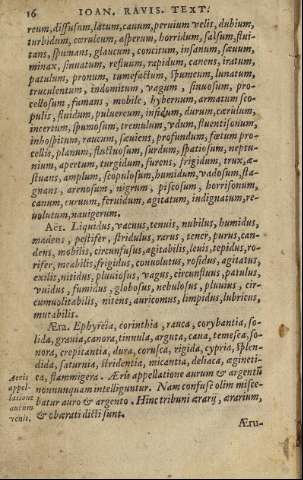 16 IOAN. RAVIS. TEXT.
reum, diffusum, latum, canum, peruium velit, dubium,
turbidum, cœruleum, asperum, horridum, salsum, flui-
tans, spumans, glaucum, concitum, insanum, sæuum,
minax, sinuatum, refluum, rapidum, canens, iratum,
patulum, pronum, tumefactum, spumeum, lunatum,
truculentum, indomitum, vagum, sinuosum, pro-
cellosum, fumans, mobile, hybernum, armatum sco-
pulis, fluidum, puluereum, infidum, durum, cærulum,
incertum, spumosum, tremulum, vdum, fluentisonum,
inhospitum, raucum, sæuiens, profundum, fœtum pro-
cellis, planum, fluctuosum, surdum, spatiosum, neptu-
nium, apertum, turgidum, furens, frigidum, trux, æ-
stuans, amplum, scopulosum, humidum, vadosum, sta-
gnans, arenosum, nigrum, piscosum, horrisonum,
canum, curuum, feruidum, agitatum, indignatum, re-
uolutum, nauigerum.
Aer. Liquidus, vacuus, tenuis, nubilus, humidus,
madens, pestifer, stridulus, rarus, tener, purus, can-
dens, mobilis, circunfusus, agitabilis, leuis, tepidus, ro-
rifer, meabilis, frigidus, conuolutus, rosidus, agitatus,
exilis, nitidus, pluuiosus, vagus, circunfluus, patulus,
vuidus, fumidus, globosus, nebulosus, pluuius, cir-
cumuolitabilis, nitens, auricomus, limpidus, lubricus,
mutabilis.
Æra. Ephyreia, corinthia, rauca, corybantia, so-
lida, grauia, canora, tinnula, arguta, caua, temesea, so-
nora, crepitantia, dura, corusca, rigida, cypria, splen-
dida, saturnia, stridentia, micantia, dehisca, agineti-
ca, flammigera. Æris appellatione aurum & argentū
nonnunquam intelliguntur. Nam confusè olim misce-
batur auro & argento. Hinc tribuni ærarij, ærarium,
& obærati dicti sunt.
Æris
appel-
latione
aurum
venit.
Æru-